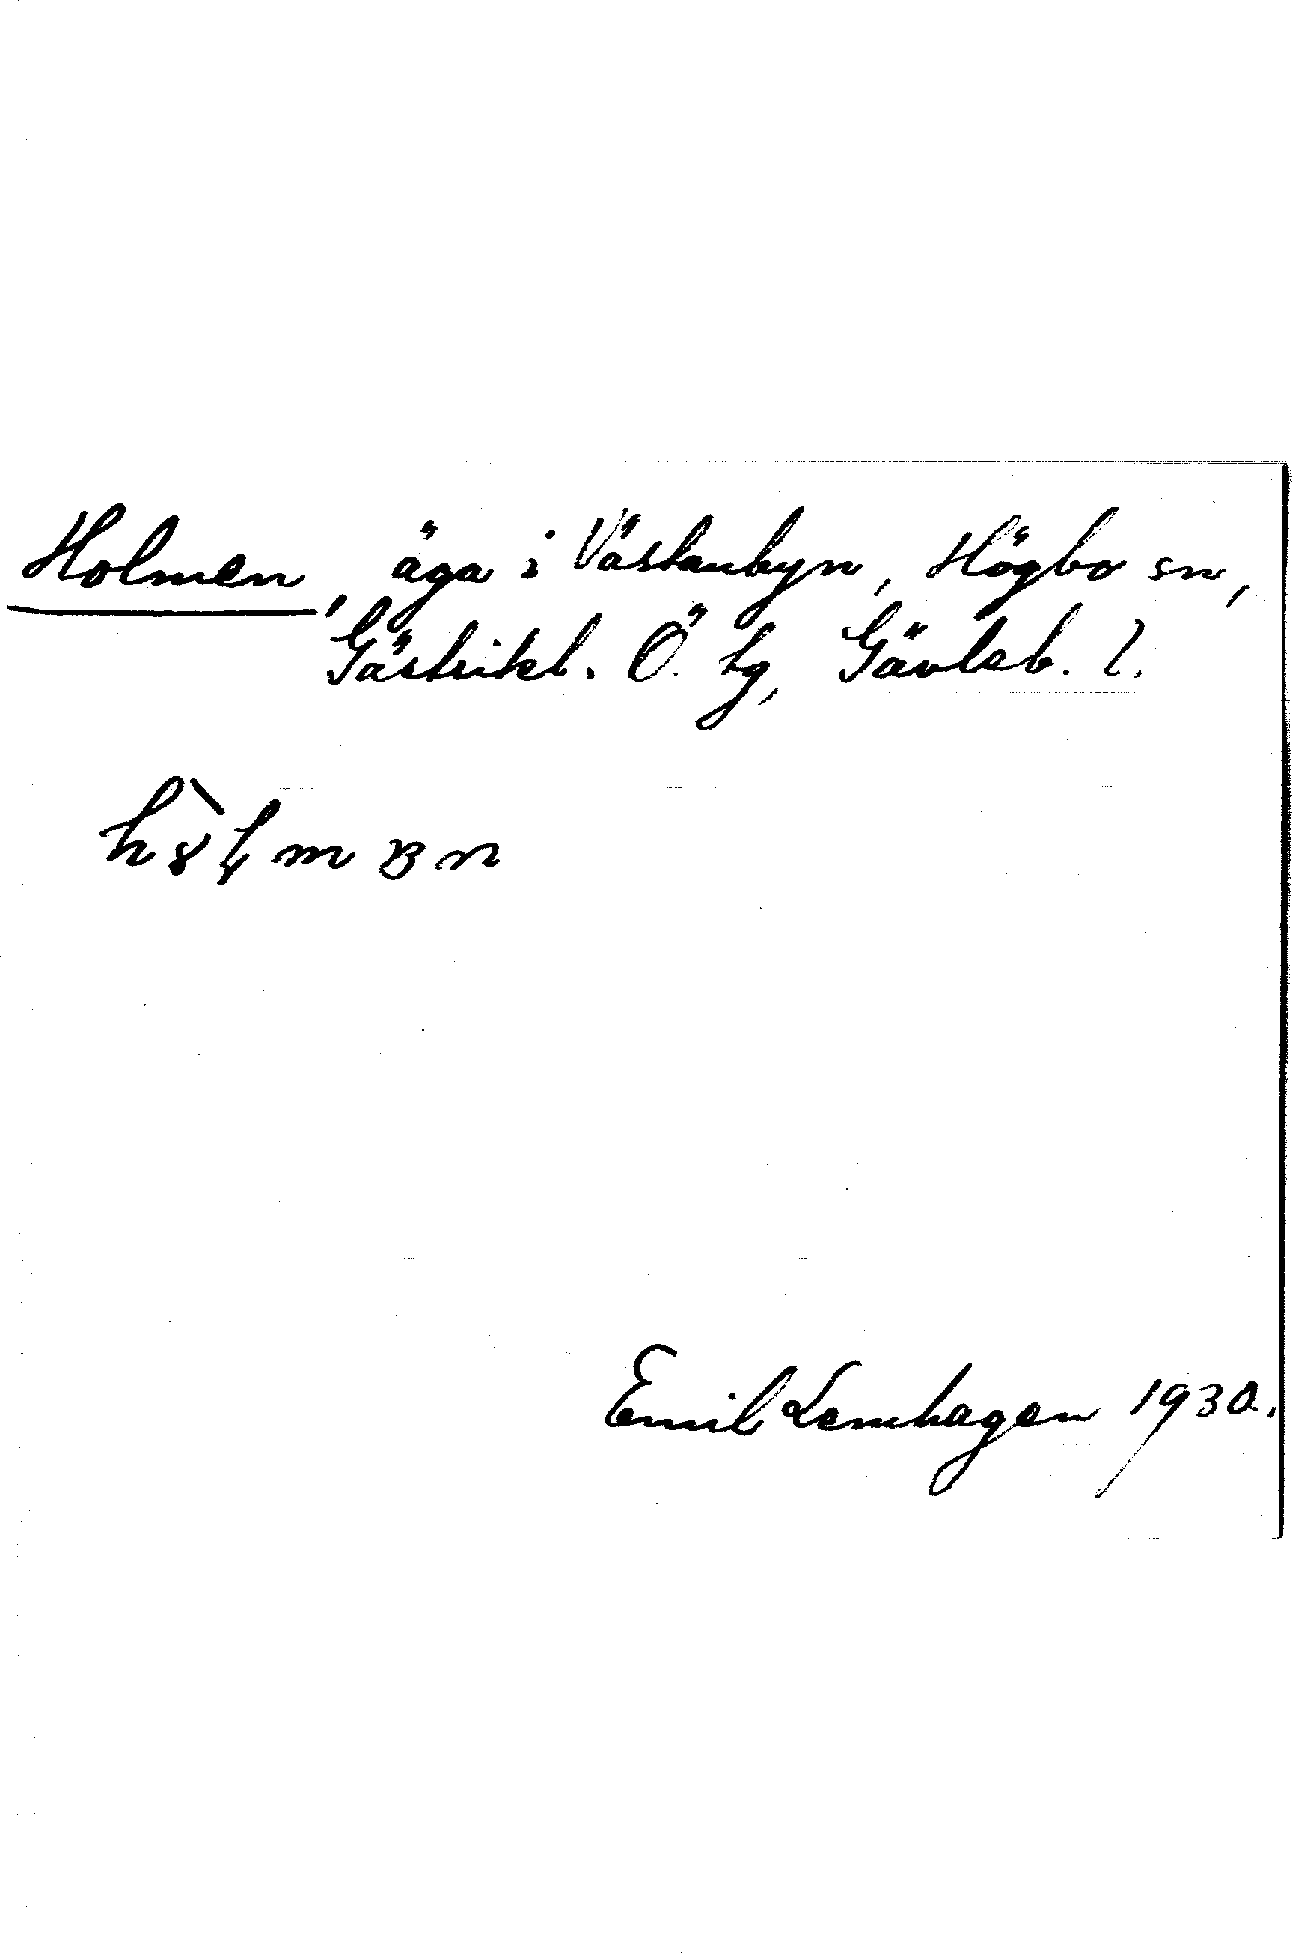 Holmen, äga i Västanbyn, Högbo sn,
Gästrikl. Ö. tg, Gävleb. l.
Emil Lenhagen 1930.